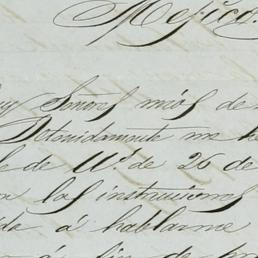 Mejico.
Muy Señores mios de
Detenidamente me he
de Uds de 26 de
las instrucciones
á hablarme
á fin de